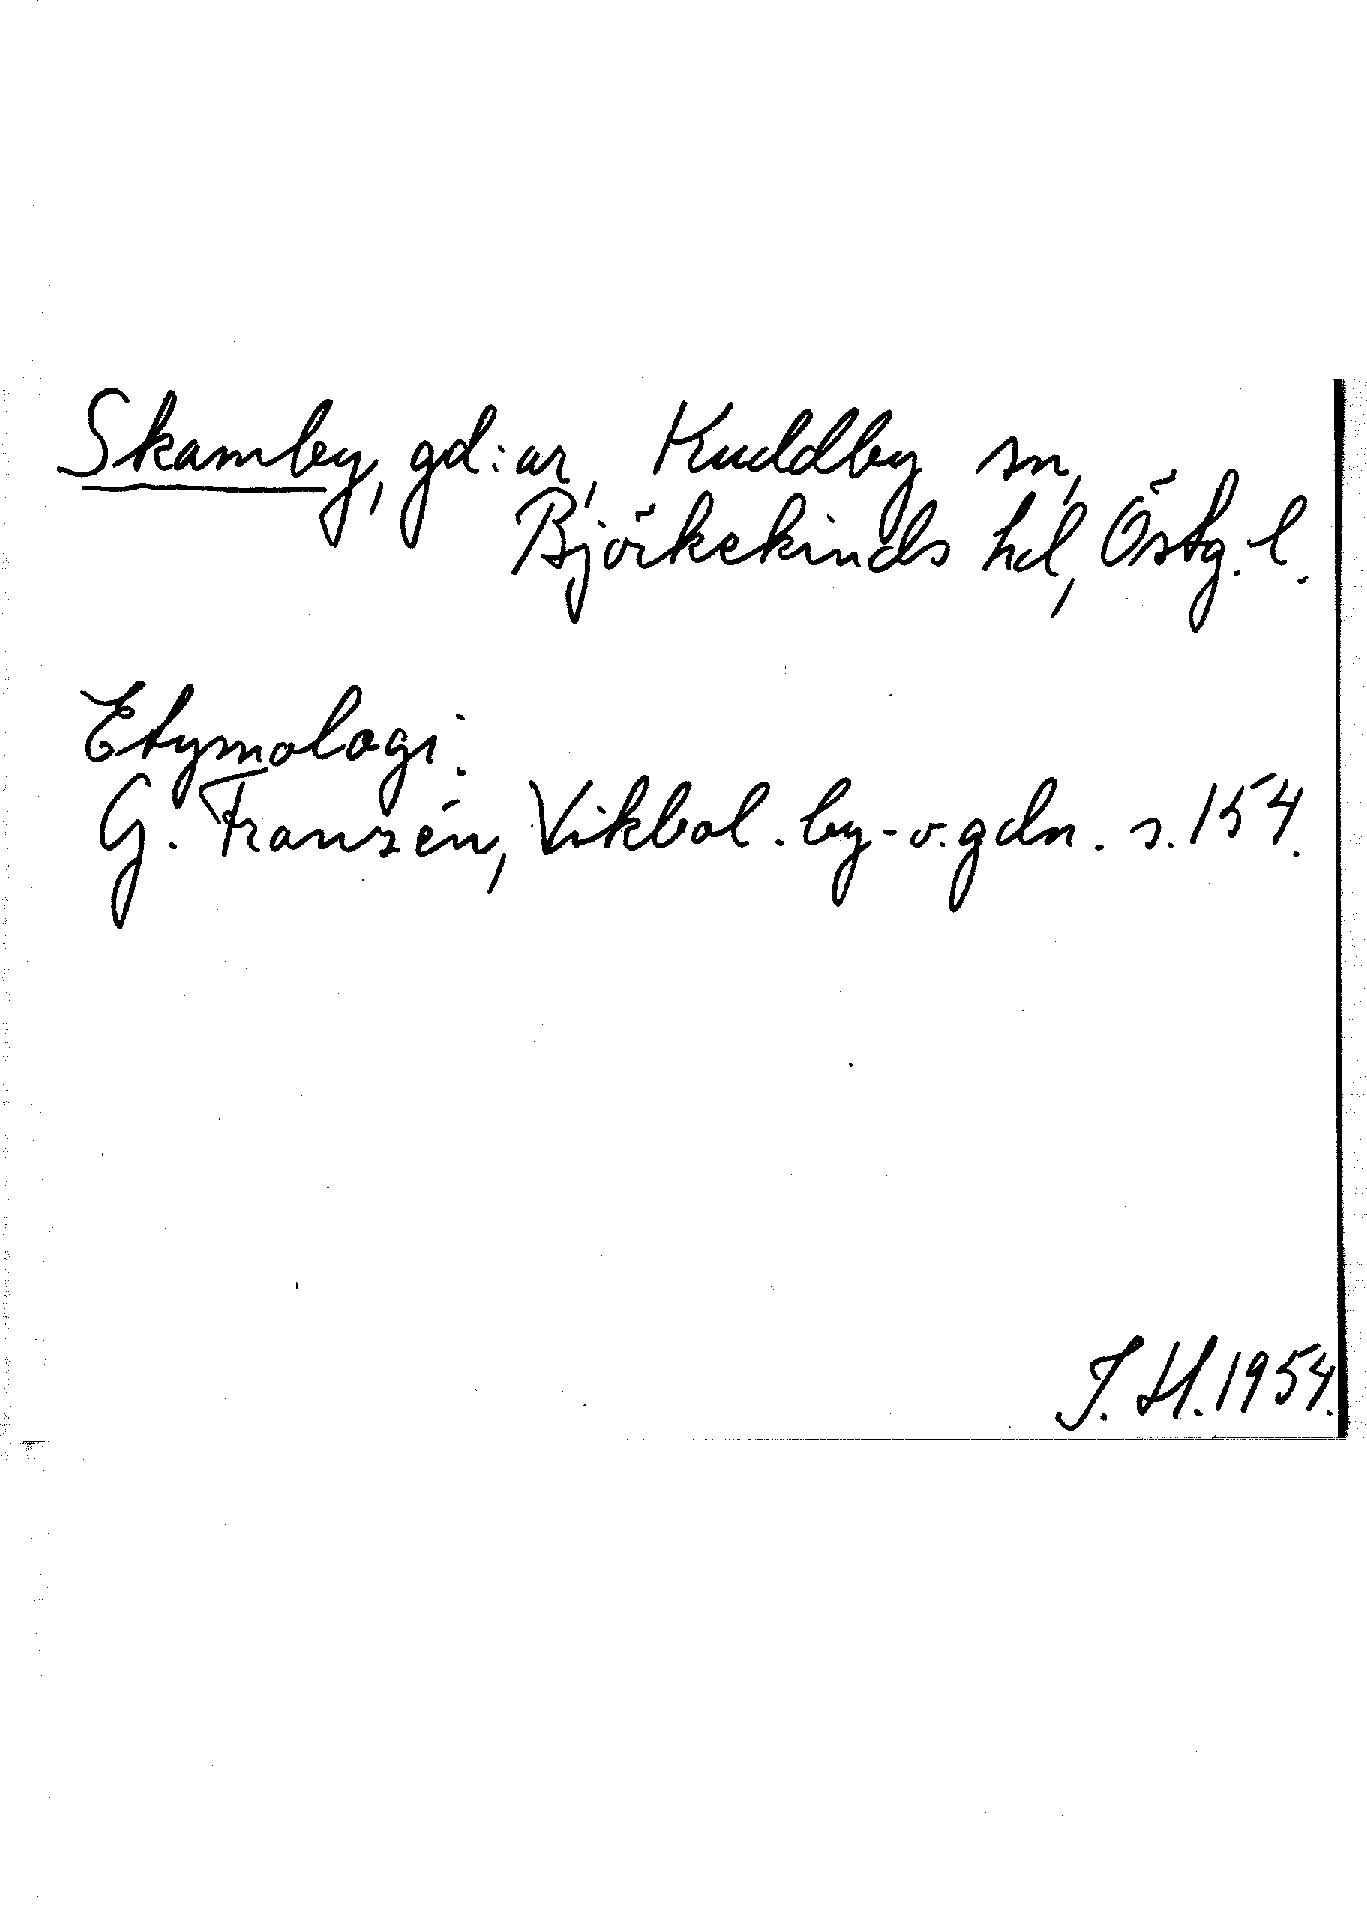 Skamby, gd:ar, Kuddby sn,
Björkekinds hd, Östg. l.
Etymologi:
G. Franzén, Vikbol. by- o. gdn. s. 154.
J. H. 1954.